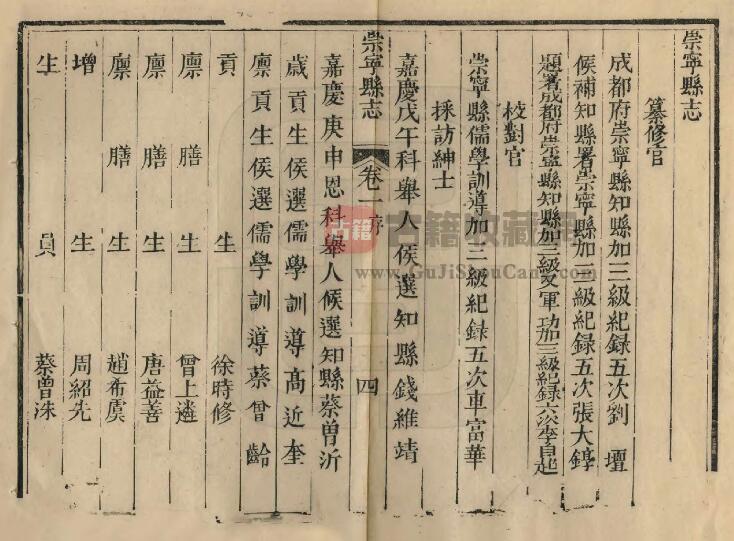 崇寧縣志
纂修官
成都府崇寧縣知縣加三級紀録五次劉壇
候補知縣署崇寧縣加三級紀録五次張大錞
題署成都府崇寧縣知縣加三級又軍功加三級紀録六次李自
校對官
崇寧縣儒學訓導加三級紀録五次車富華
採訪紳士
嘉慶戊午科舉人候選知縣錢維靖
崇寧縣志 卷一 序 四
嘉慶庚申恩科舉人候選知縣蔡曾沂
歲貢生侯選儒學訓導高近奎
廪貢生侯選儒學訓導蔡曾齡
貢生徐時修
廪膳生曾上遴
廪膳生唐益善
廪膳生趙希虞
增生周紹先
生員蔡曾洙
古籍 古籍收藏网
www.GuJiShouCang.com